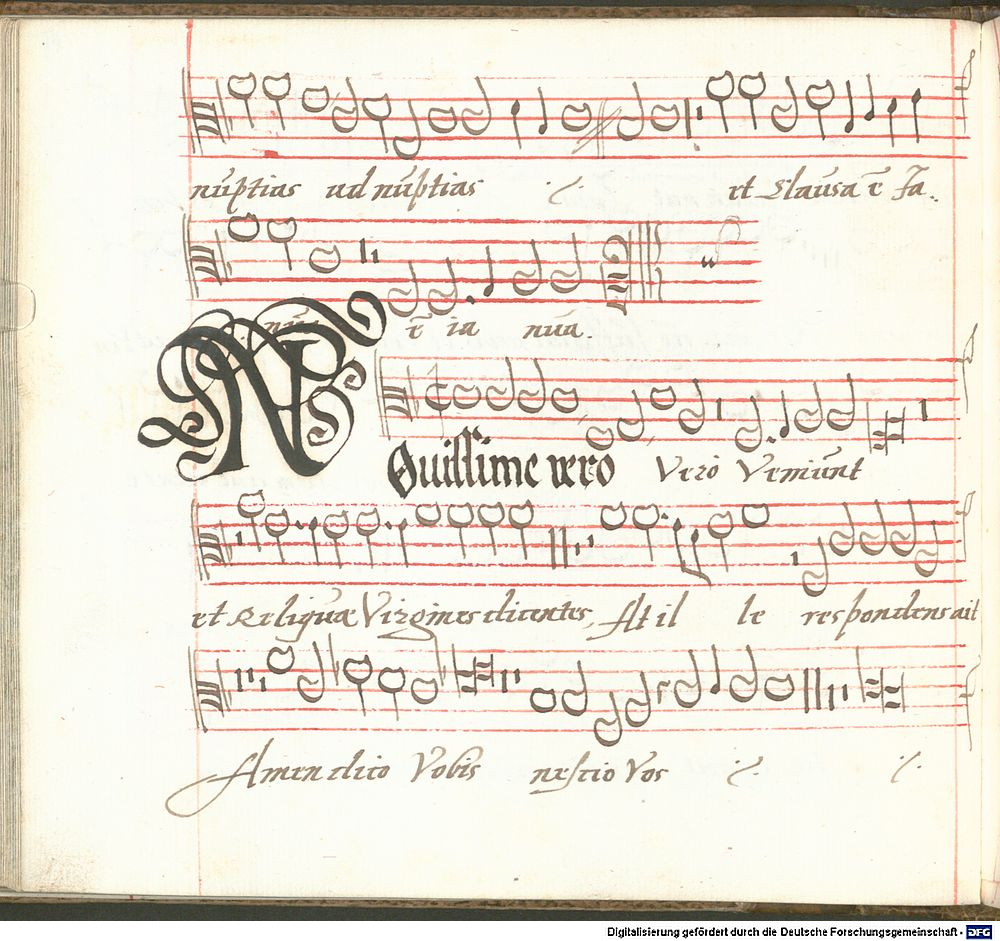 nūptias ad nūptias ·/. et Clausa ē Ja.
nūa ē ia nūa
Nouissime vero Vero Veniūnt
et Reliqūæ Virgines dicentes, At il le respondens ait
Amen dico Vobis nescio Vos ·/. ·/.
Digitalisierung gefördert durch die Deutsche Forschungsgemeinschaft - DFG